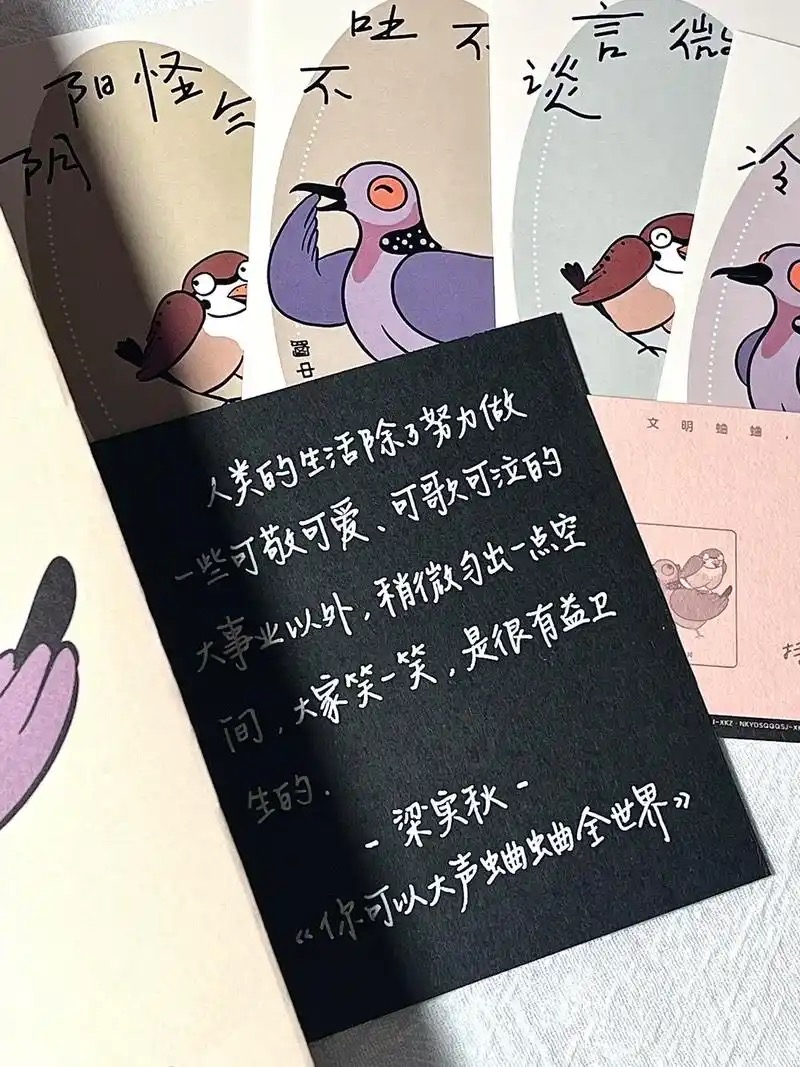 阴阳怪
不吐不
谈言微
冷
文明蛐蛐，
人类的生活除了努力做
一些可敬可爱、可歌可泣的
大事业以外，稍微匀出一点空
间，大家笑一笑，是很有益卫
生的.
- 梁实秋 -
《你可以大声蛐蛐全世界》
J-XKZ · NKYDSQQQSJ-X